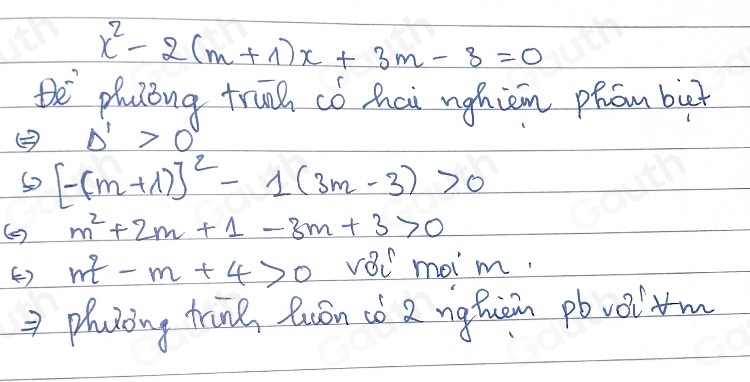 x² - 2(m + 1)x + 3m - 3 = 0
Để phương trình có hai nghiệm phân biệt
⇔ Δ' > 0
⇔ [-(m+1)]² - 1(3m - 3) > 0
⇔ m² + 2m + 1 - 3m + 3 > 0
⇔ m² - m + 4 > 0 với mọi m.
⇒ phương trình luôn có 2 nghiệm pb với ∀m